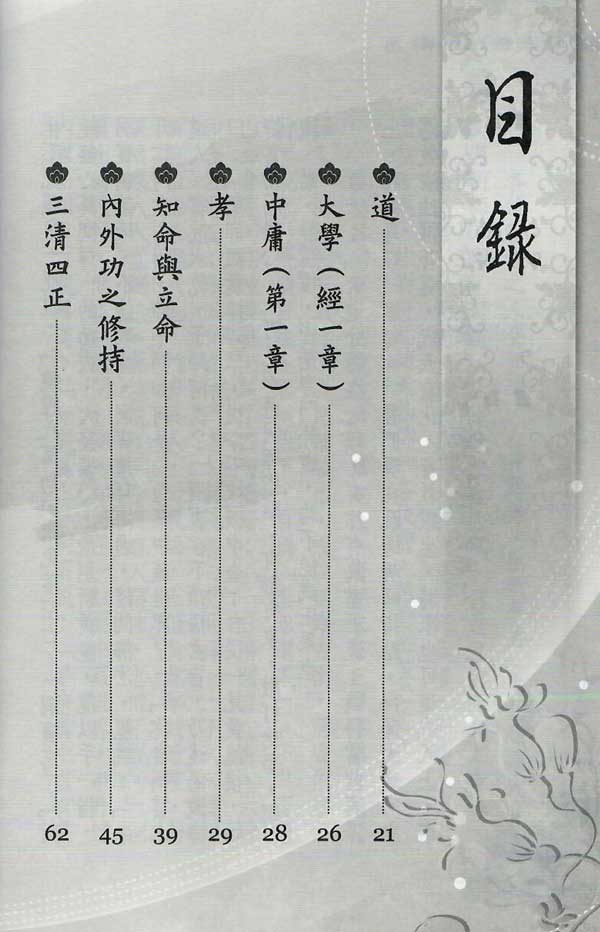 目錄
道 21
大學(經一章) 26
中庸(第一章) 28
孝 29
知命與立命 39
內外功之修持 45
三清四正 62